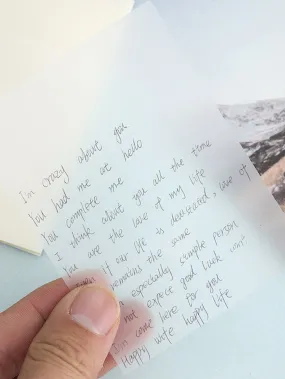 I'm crazy about you
You had me at hello
You complete me
I think about you all the time
You are the love of my life
if our life is dominated, love of
remains the same
especially simple person
not expect good luck
I'm come here for you
Happy wife happy life